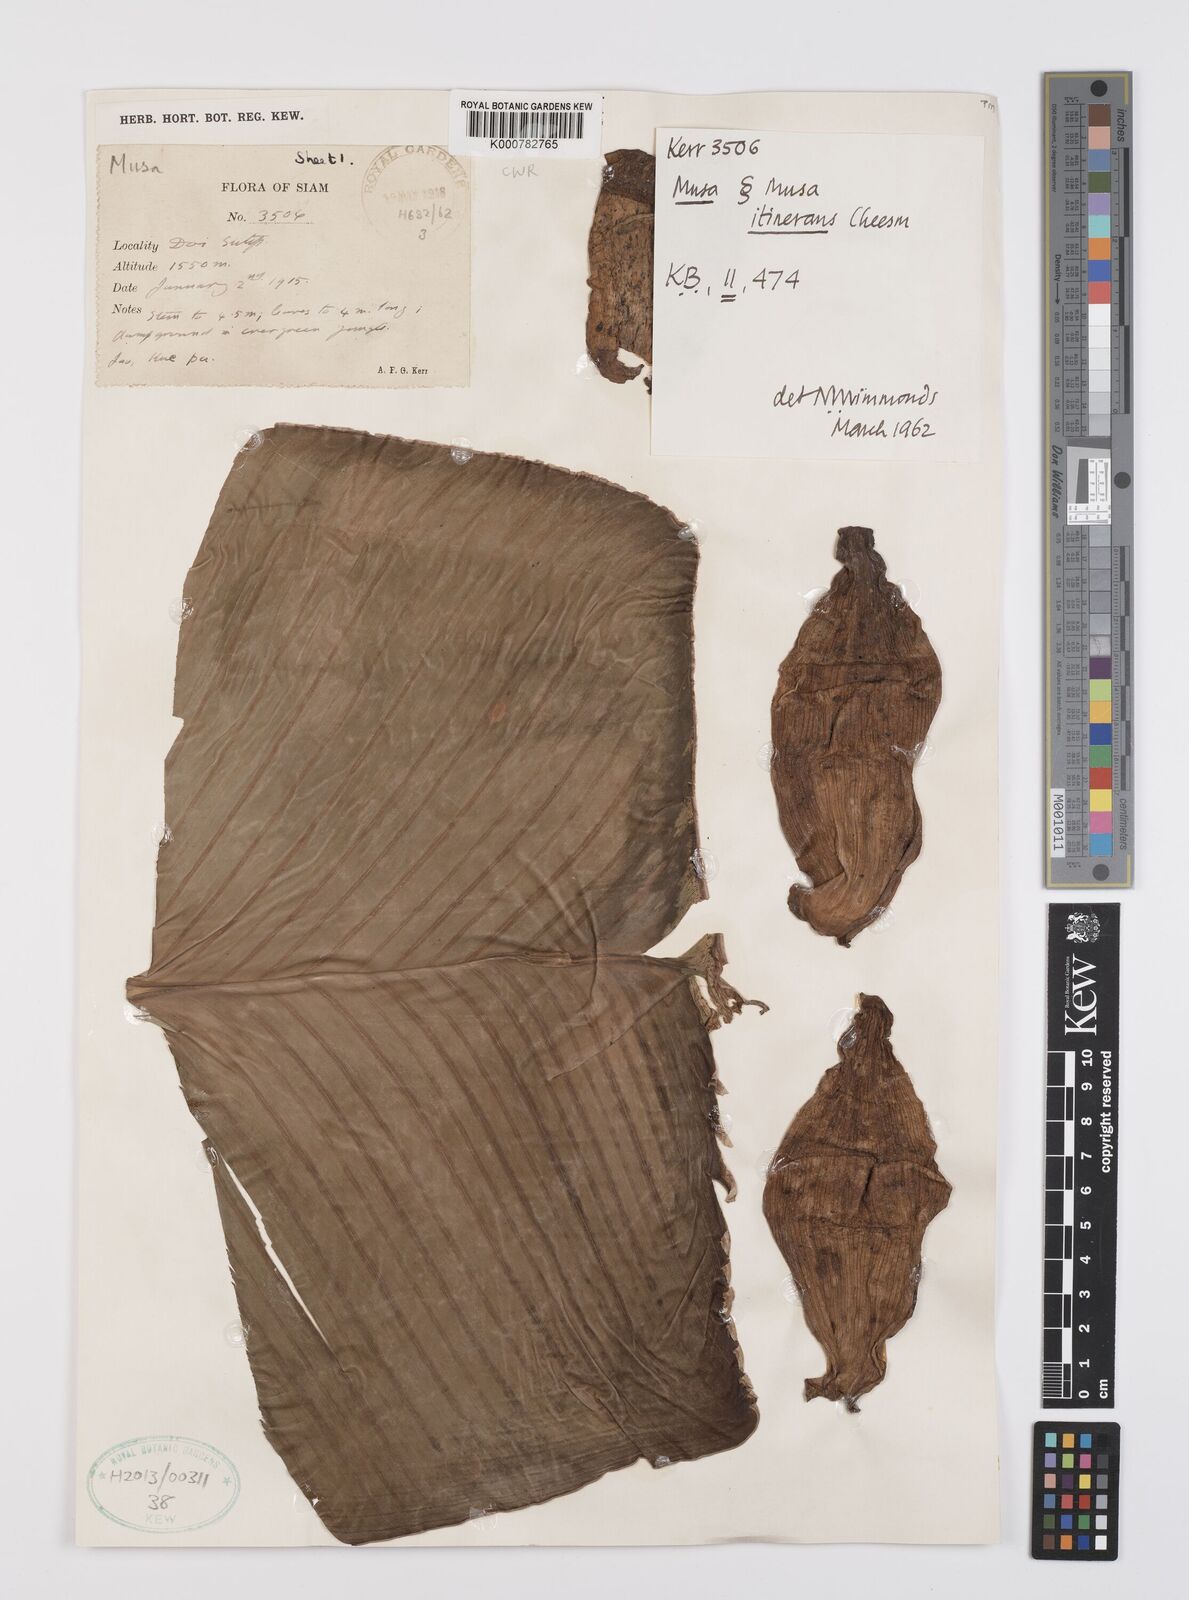 HERB. HORT. BOT. REG. KEW.
Musa
Sheet 1.
FLORA OF SIAM
No. 3506
Locality Doi Sutep.
Altitude 1550 m.
Date January 2nd 1915.
Notes Stem to 4.5m; leaves to 4 m. long;
damp ground in evergreen jungle.
Kue pa.
A. F. G. Kerr
ROYAL GARDENS
H682/62
3
ROYAL BOTANIC GARDENS KEW
K000782765
CWR
Kerr 3506
Musa § Musa
itinerans Cheesm
K.B., 11, 474
det NWSimmonds
March 1962
ROYAL BOTANIC GARDENS
H2013/00311
38
KEW
inches
centimeters
Density
Don Williams
M001011
Kew
Royal Botanic Gardens
copyright reserved
0 1 2 3 4 5 6 7 8 9 10
cm